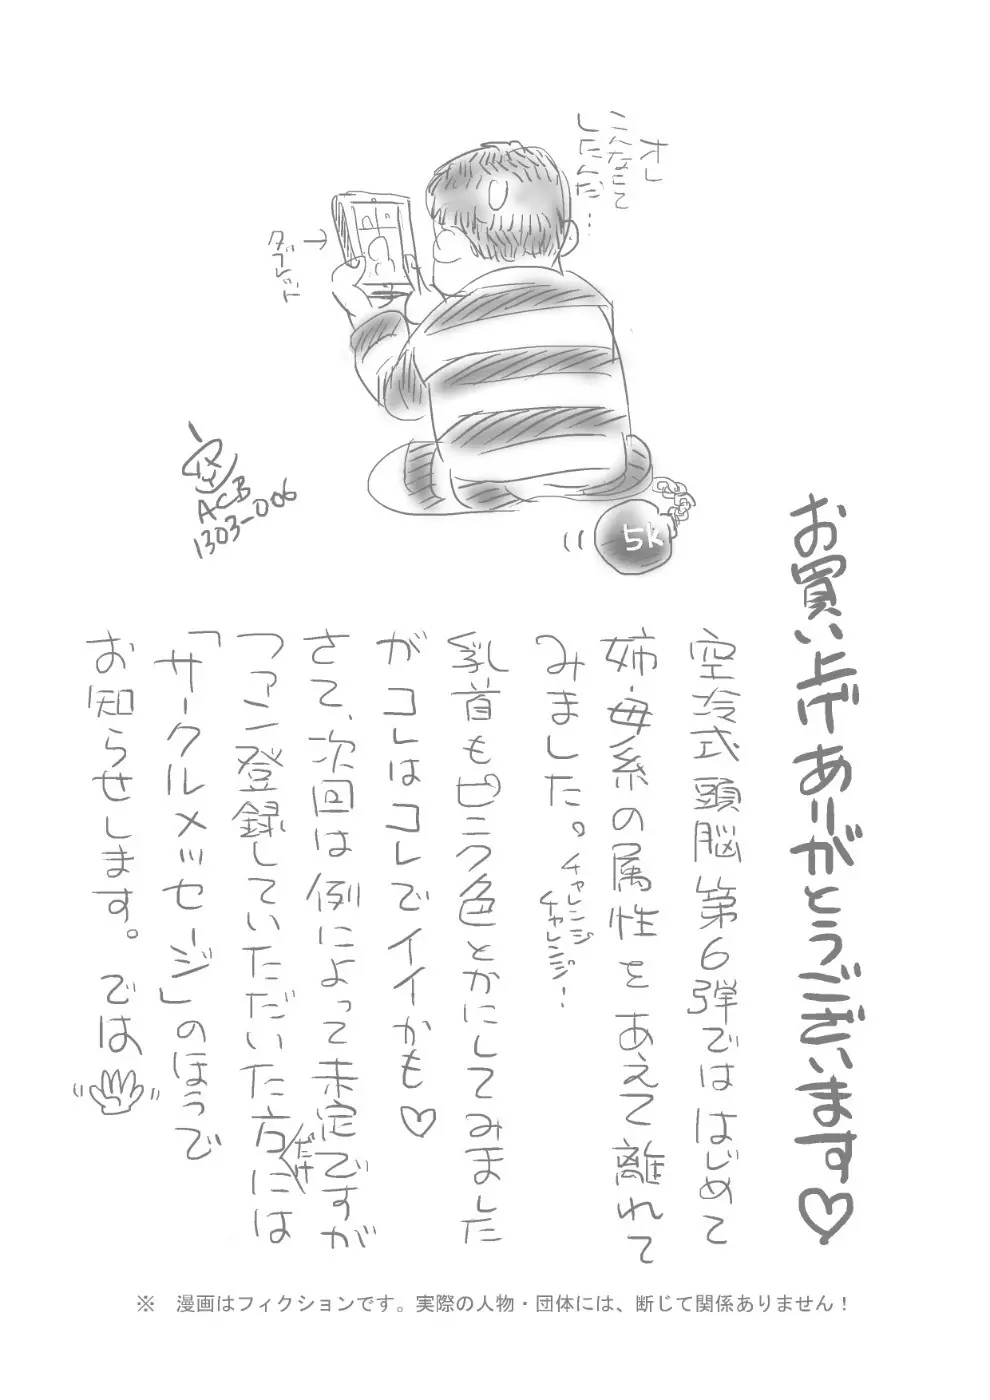 オレ
こんなことして
したんだ…
タブレット
→
空
ACB
1303-006
5k
お買い上げありがとうございます♡
空冷式頭脳第6弾でははじめて
姉・母系の属性をあえて離れて
みました。チャレンジチャレンジ!
乳首もピンク色とかにしてみました
がコレはコレでイイかも♡
さて、次回は例によって未定ですが
ファン登録していただいた方だけには
「サークルメッセージ」のほうで
お知らせします。では、
※ 漫画はフィクションです。実際の人物・団体には、断じて関係ありません！